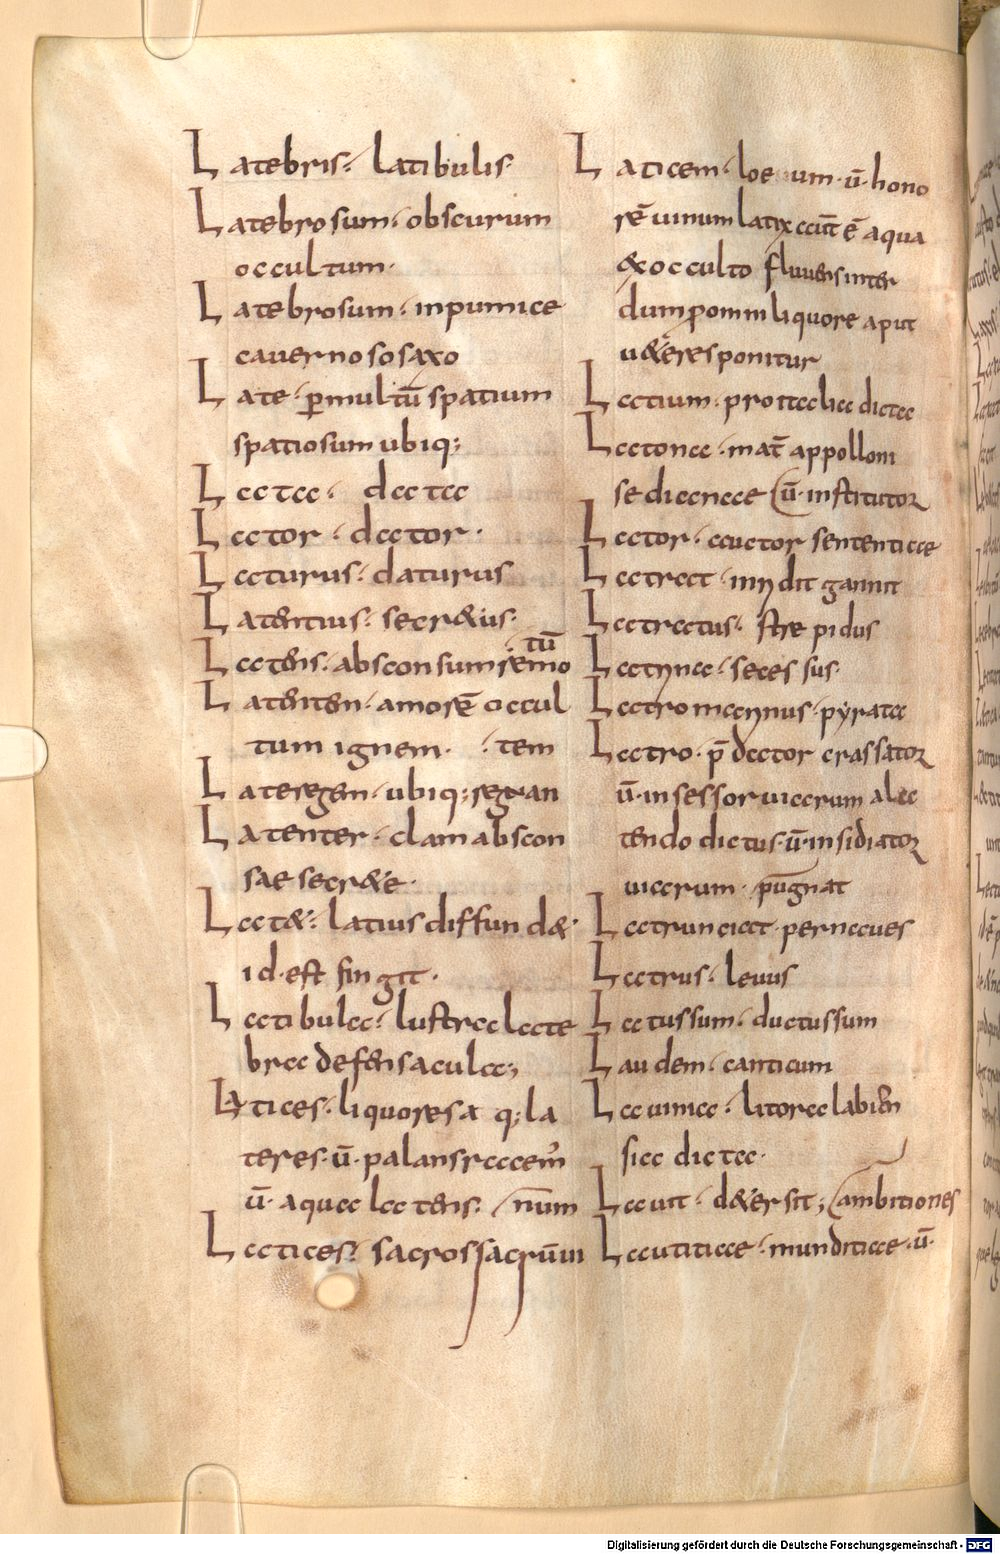 Latebris · latibulis·
Latebrosum · obscurum
occultum·
Latebrosum · inpumice
cauernoso saxo
Late · ꝑmultū spatium
spatiosum ubiq;
Lata · data
Lator · dator ·
Laturus · daturus
Latentius · secretius·
Latens · absconsum remo
tū
Latenten · amorē occul
tum ignem · 
tem
Lateregem · ubiq; regnan
Latenter · clam abscon
sae secrete·
Latet · latius diffundet·
id·est fingit·
Latibula · lustra late
bra defensacula;
Latices · liquores a q; la
teres·ū·palans
ū· aqua latens·
Latices · sacros
Laticem · ū· hono
rē uinum latix aut̄ ē aqua
ex occulto fluuens inter
dum ꝓ omni liquore aput
ueteres ponitur
Latium · dicta
Latona · mat̄ appolloni
se dianae ū· institutor
Lator · auctor sententiae
Latrat · gannit
Latratus · strepidus
Latrina · secessus·
Latromannus · pyrata
Latro · p̄dator crassator
ū·insessor uiarum a la
tendo dictus·ū·insidiator
uiarum · pugnat
Latrunciat · pernaues
Latrus · leuus
Latussum · ductussum
Laudem · canticum
Lauinia · litora labien
sia dicta·
Lauit · detersit; ambitiones
Lautitiae · munditiae·ū·
Digitalisierung gefördert durch die Deutsche Forschungsgemeinschaft - DFG